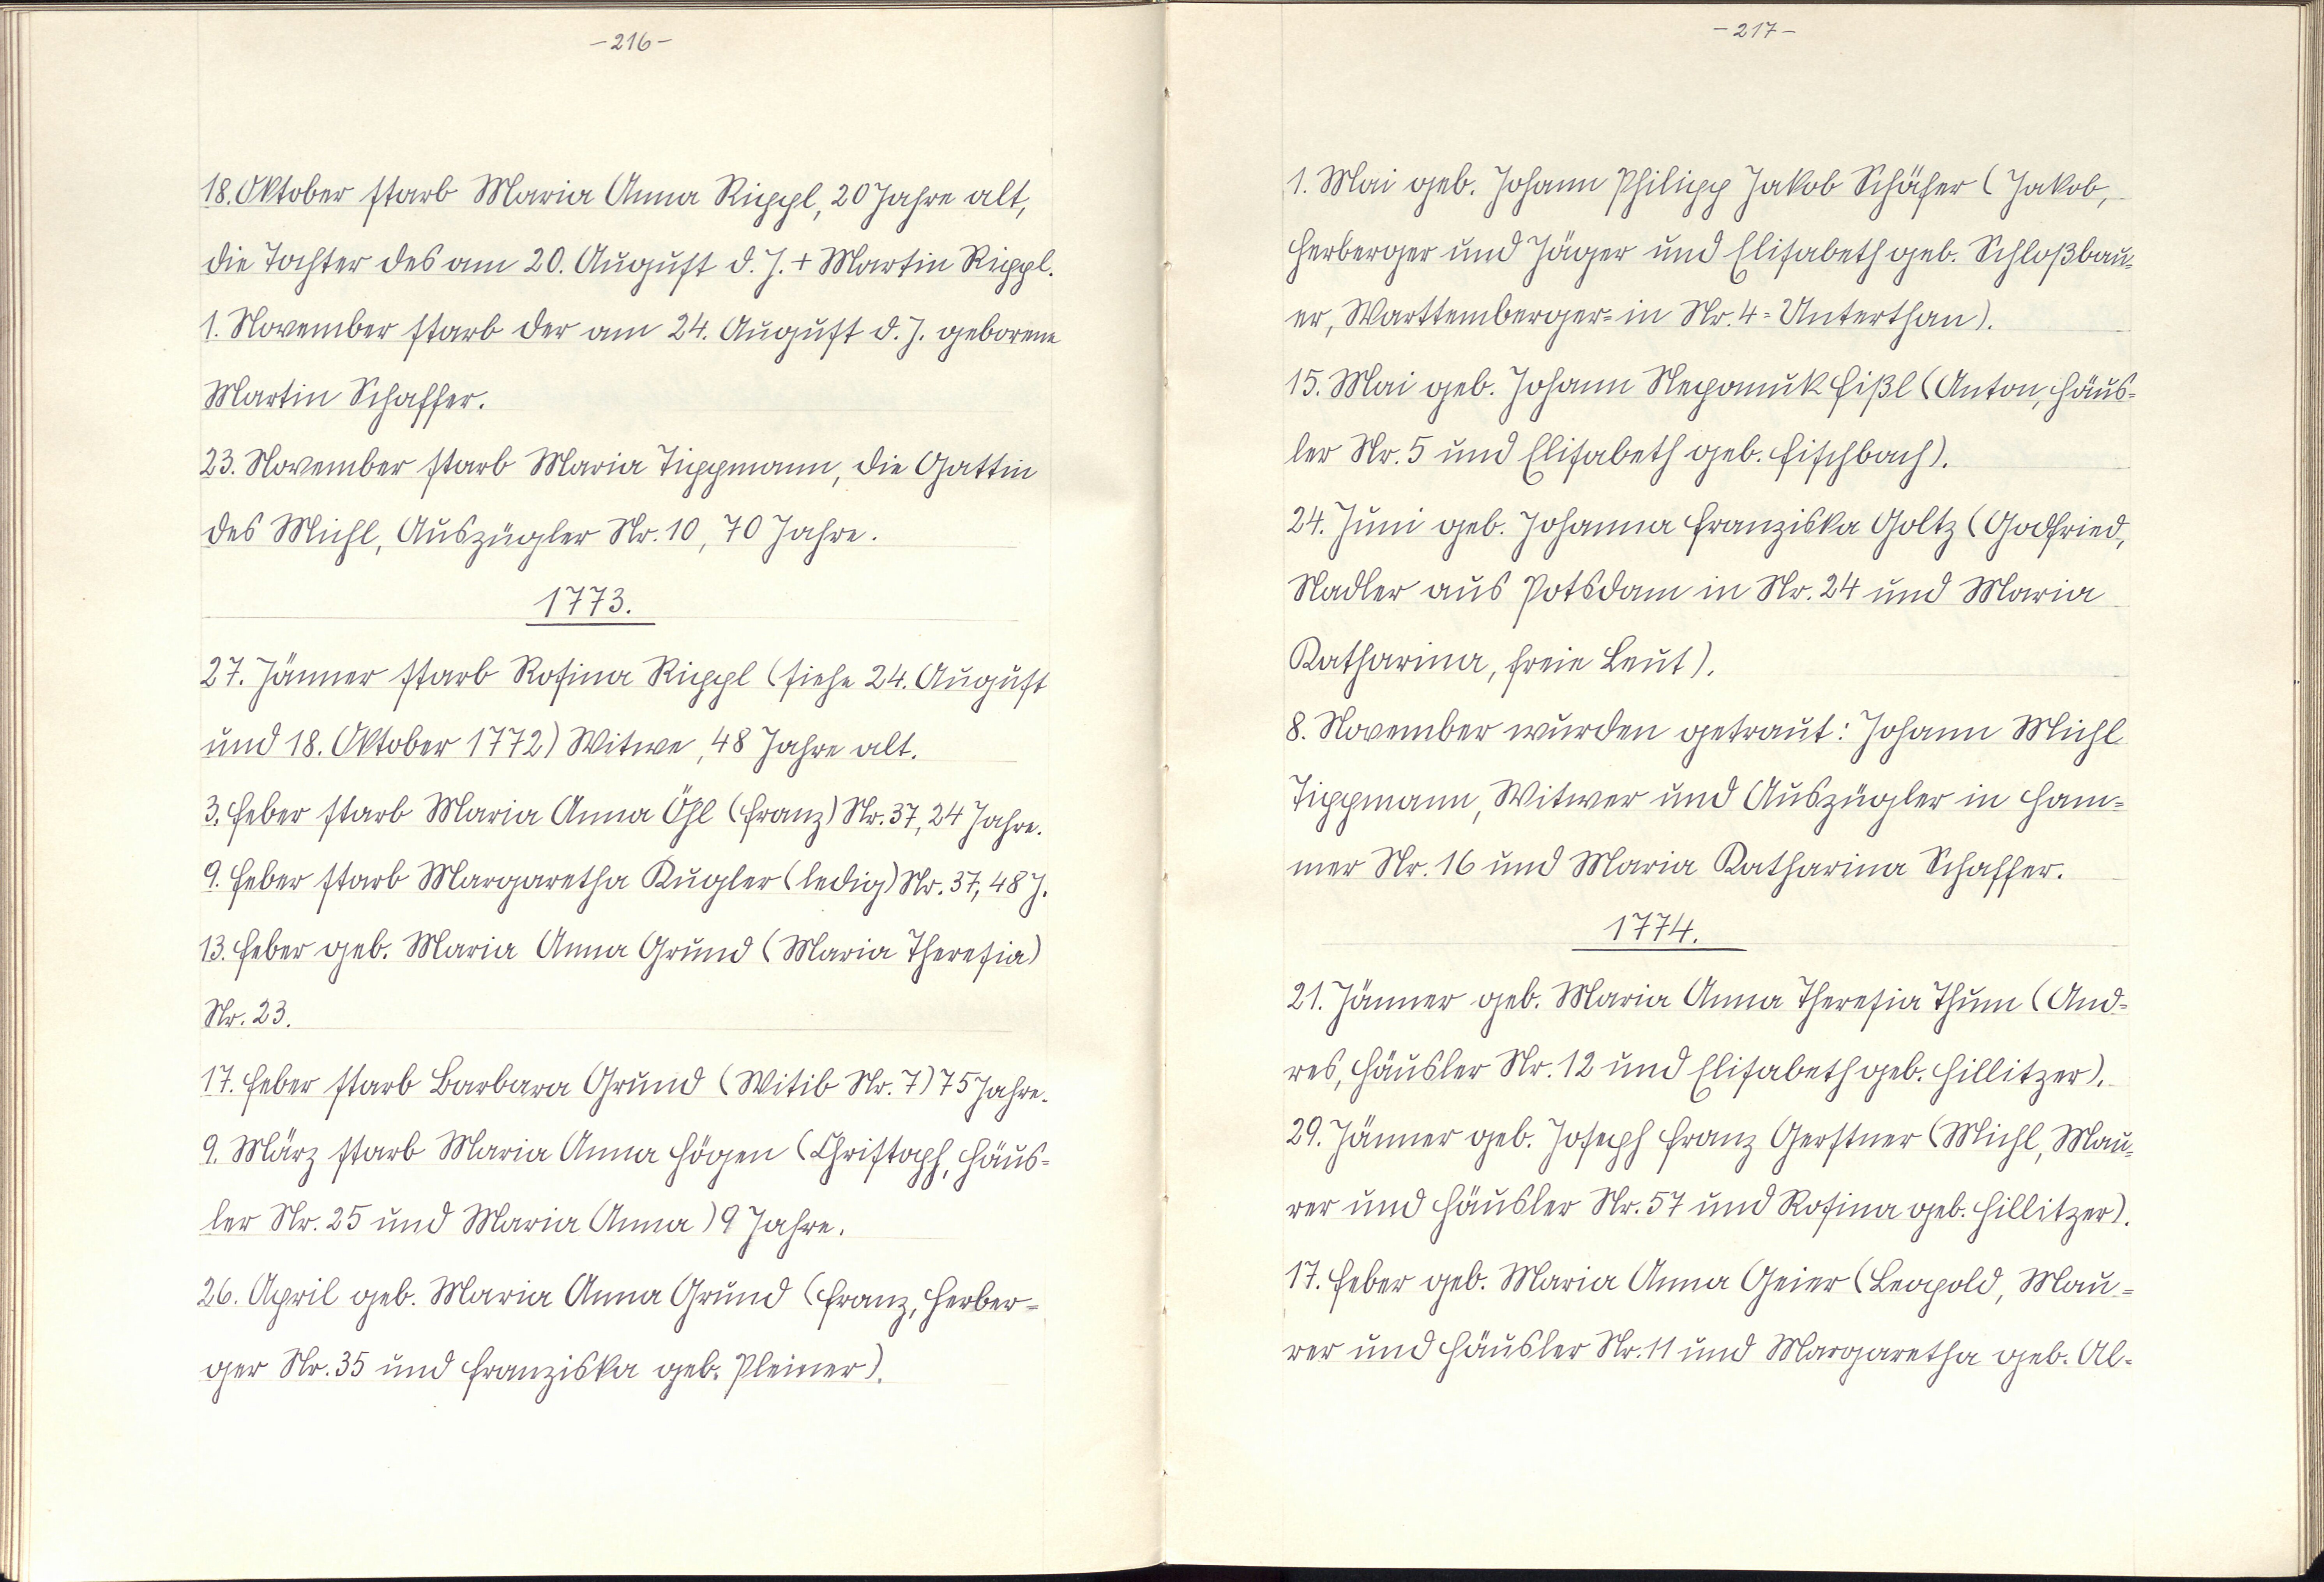 -216-
18. Oktober starb Maria Anna Rippl, 20 Jahre alt,
die Tochter des am 20. August d. J. + Martin Rippl.
1. November starb der am 24. August d. J. geborene
Martin Schaffer.
23. November starb Maria Tippmann, die Gattin
des Michl, Auszügler Nr. 10, 70 Jahre.
1773.
27. Jänner starb Rosina Rippl (siehe 24. August
und 18. Oktober 1772) Witwe, 48 Jahre alt.
3. Feber starb Maria Anna Öhl (Franz) Nr. 37, 24 Jahre.
9. Feber starb Margaretha Kugler (ledig) Nr. 37, 48 J.
13. Feber geb. Maria Anna Grund (Maria Theresia)
Nr. 23.
17. Feber starb Barbara Grund (Witib Nr. 7) 75 Jahre.
9. März starb Maria Anna Högen (Christoph, Häus=
ler Nr. 25 und Maria Anna) 9 Jahre.
26. April geb. Maria Anna Grund (Franz, Herber=
ger Nr. 35 und Franziska geb. Pleiner).
-217-
1. Mai geb. Johann Philipp Jakob Schäfer (Jakob,
Herberger und Jäger und Elisabeth geb. Schloßbau=
er, Warttemberger= in Nr. 4 = Unterthan).
15. Mai geb. Johann Nepomuk Fißl (Anton, Häus=
ler Nr. 5 und Elisabeth geb. Fischbach).
24. Juni geb. Johanna Franziska Goltz (Godfried,
Nadler aus Potsdam in Nr. 24 und Maria
Katharina, freie Leut).
8. November wurden getraut: Johann Michl
Tippmann, Witwer und Auszügler in Ham=
mer Nr. 16 und Maria Katharina Schaffer.
1774.
21. Jänner geb. Maria Anna Theresia Thum (And=
res, Häusler Nr. 12 und Elisabeth geb. Hillitzer).
29. Jänner geb. Joseph Franz Gerstner (Michl, Mau=
rer und Häusler Nr. 57 und Rosina geb. Hillitzer).
17. Feber geb. Maria Anna Geier (Leopold, Mau=
rer und Häusler Nr. 11 und Margaretha geb. Al=